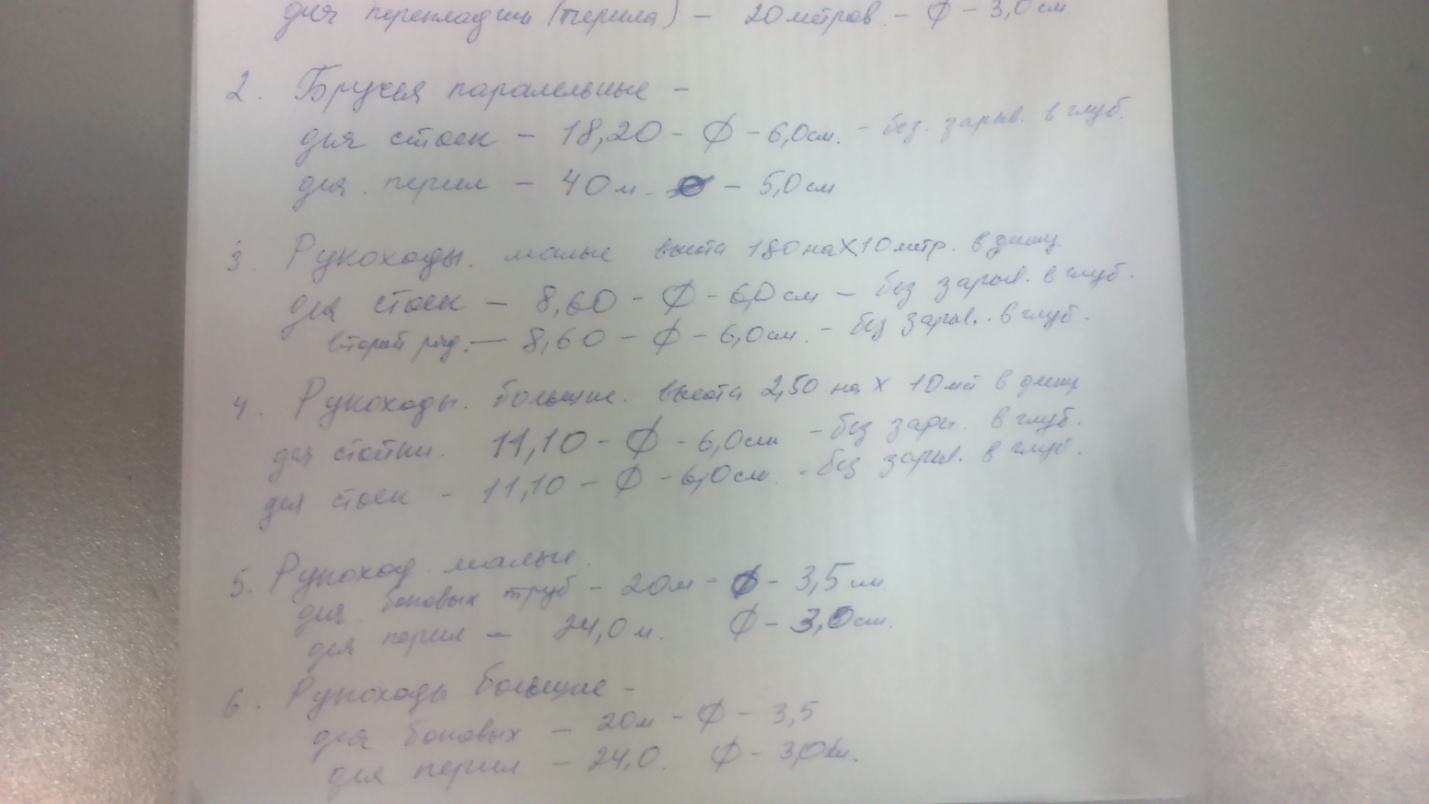 для перекладин (перила) – 20 метров. – Ф – 3,0 см
2. Брусья паралельные –
для стоек – 18,20 – Ф – 6,0 см. – без. зарыв. в глуб.
для. перил – 40 м. – 5,0 см
3. Рукоходы. малые высота 180 на х 10 метр. в длину
для стоек – 8,60 – Ф – 6,0 см – без зарыв. в глуб.
второй ряд. – 8,60 – Ф – 6,0 см. – без зарыв. в глуб.
4. Рукоходы. большие. высота 2,50 на х 10 м в длину
для стойки. 11,10 – Ф – 6,0 см – без зары. в глуб.
для стоек – 11,10 – Ф – 6,0 см. – без зарыв. в глуб.
5. Рукоход малые.
для. боковых труб – 20 м – Ф – 3,5 см
для перил – 24,0 м. Ф – 3,0 см.
6. Рукоходы большие –
для боковых – 20 м – Ф – 3,5
для перил – 24,0. Ф – 3,0 см.